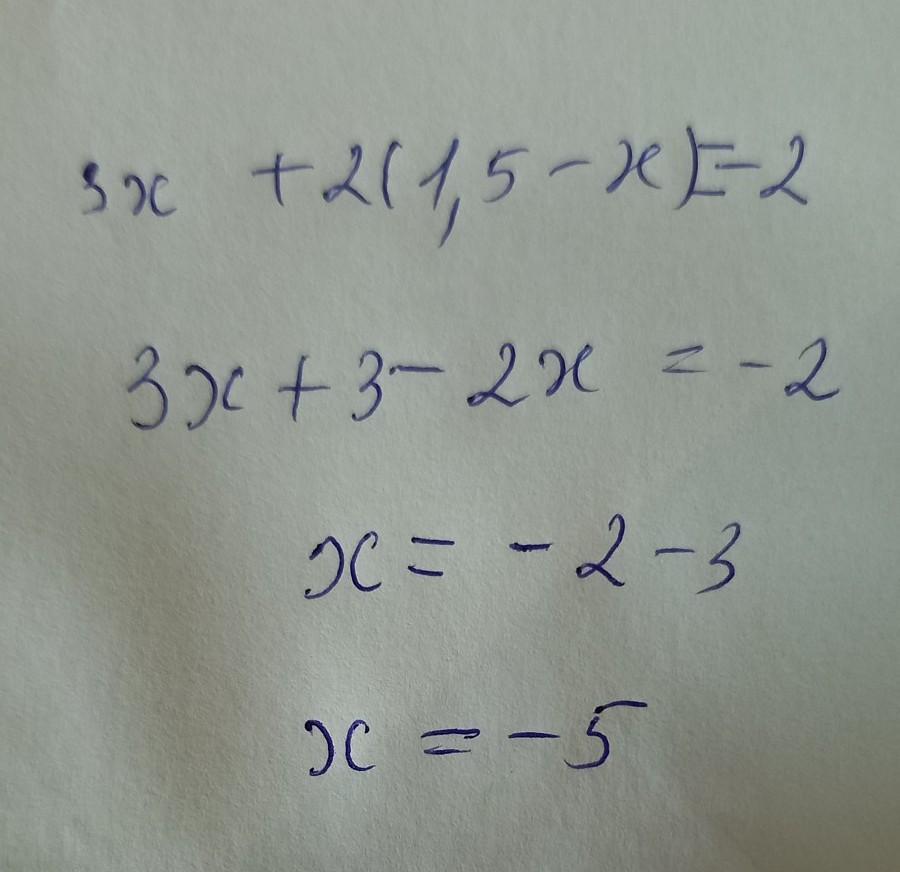 3x + 2(1,5 - x) = -2
3x + 3 - 2x = -2
x = -2 - 3
x = -5